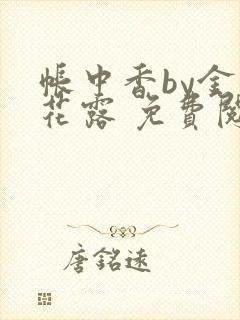 帳中香by金
花露 免費閱
唐銘遠